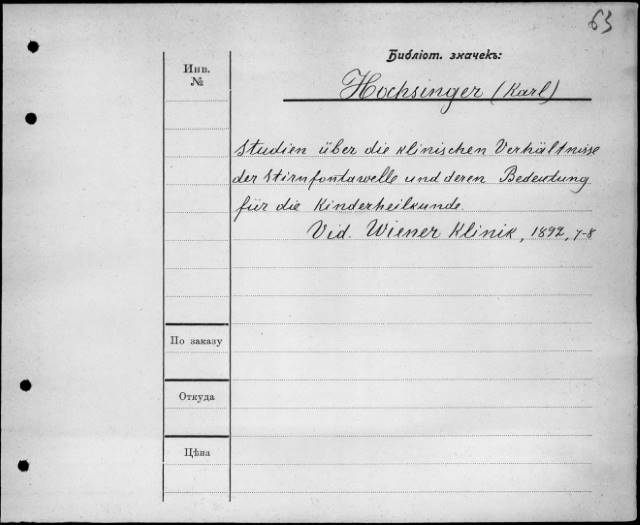 63
Библіот. значекъ:
Инв.
№
Hochsinger (Karl)
Studien über die klinischen Verhältnisse
der Stirnfontawelle und deren Bedeutung
für die Kinderheilkunde.
Vid. Wiener Klinik, 1892, 7-8
По заказу
Откуда
Цѣна